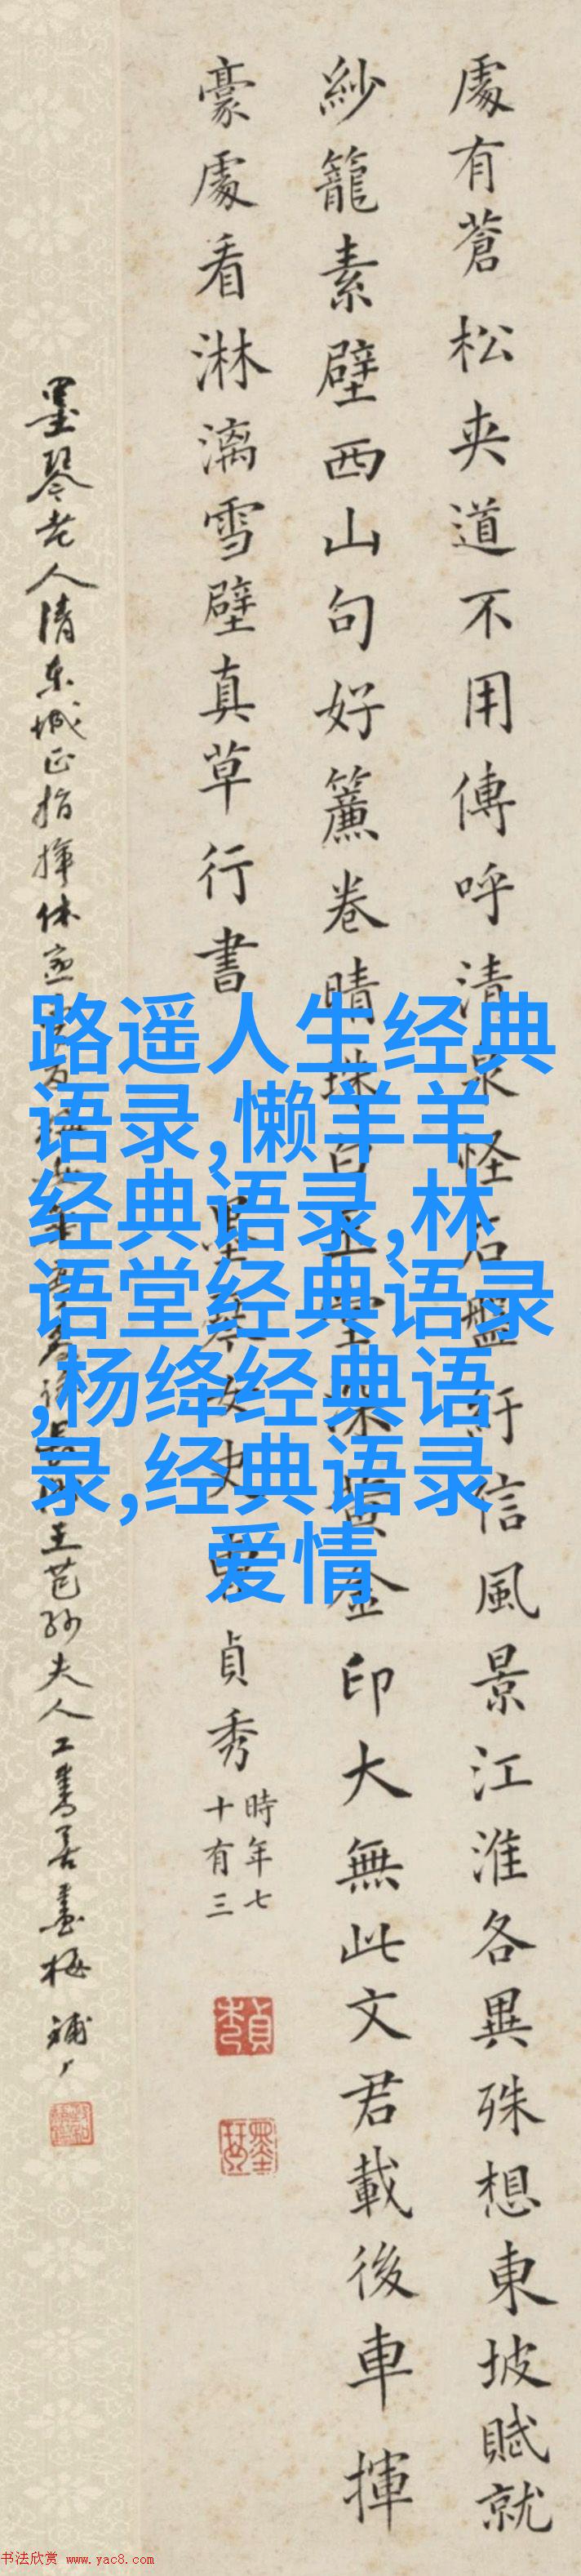 處有蒼松夾道不用傳呼清泉怪石盤紆信風景江淮各異殊想東坡賦就
紗籠素壁西山句好簾卷晴珠白玉堂深黃金印大無此文君載後車揮
豪處看淋漓雪壁真草行書
墨琴女史曹貞秀
時年七
十有三
貞秀
墨琴
墨琴老人清東城正指揮
王芑孫夫人工書善畫梅
路遥人生经典
语录,懒羊羊
经典语录,林
语堂经典语录
,杨绛经典语
录,经典语录
爱情
书法欣赏 www.yac8.com